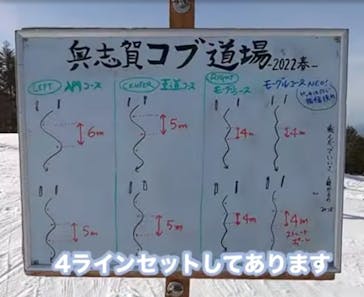 奥志賀コブ道場-2022春-
LEFT 入門コース
CENTER 王道コース
RIGHT モーグルコース
モーグルコース NEW!
6m
5m
4m
4m
5m
5m
4m
4m
ストレート
4ラインセットしてあります